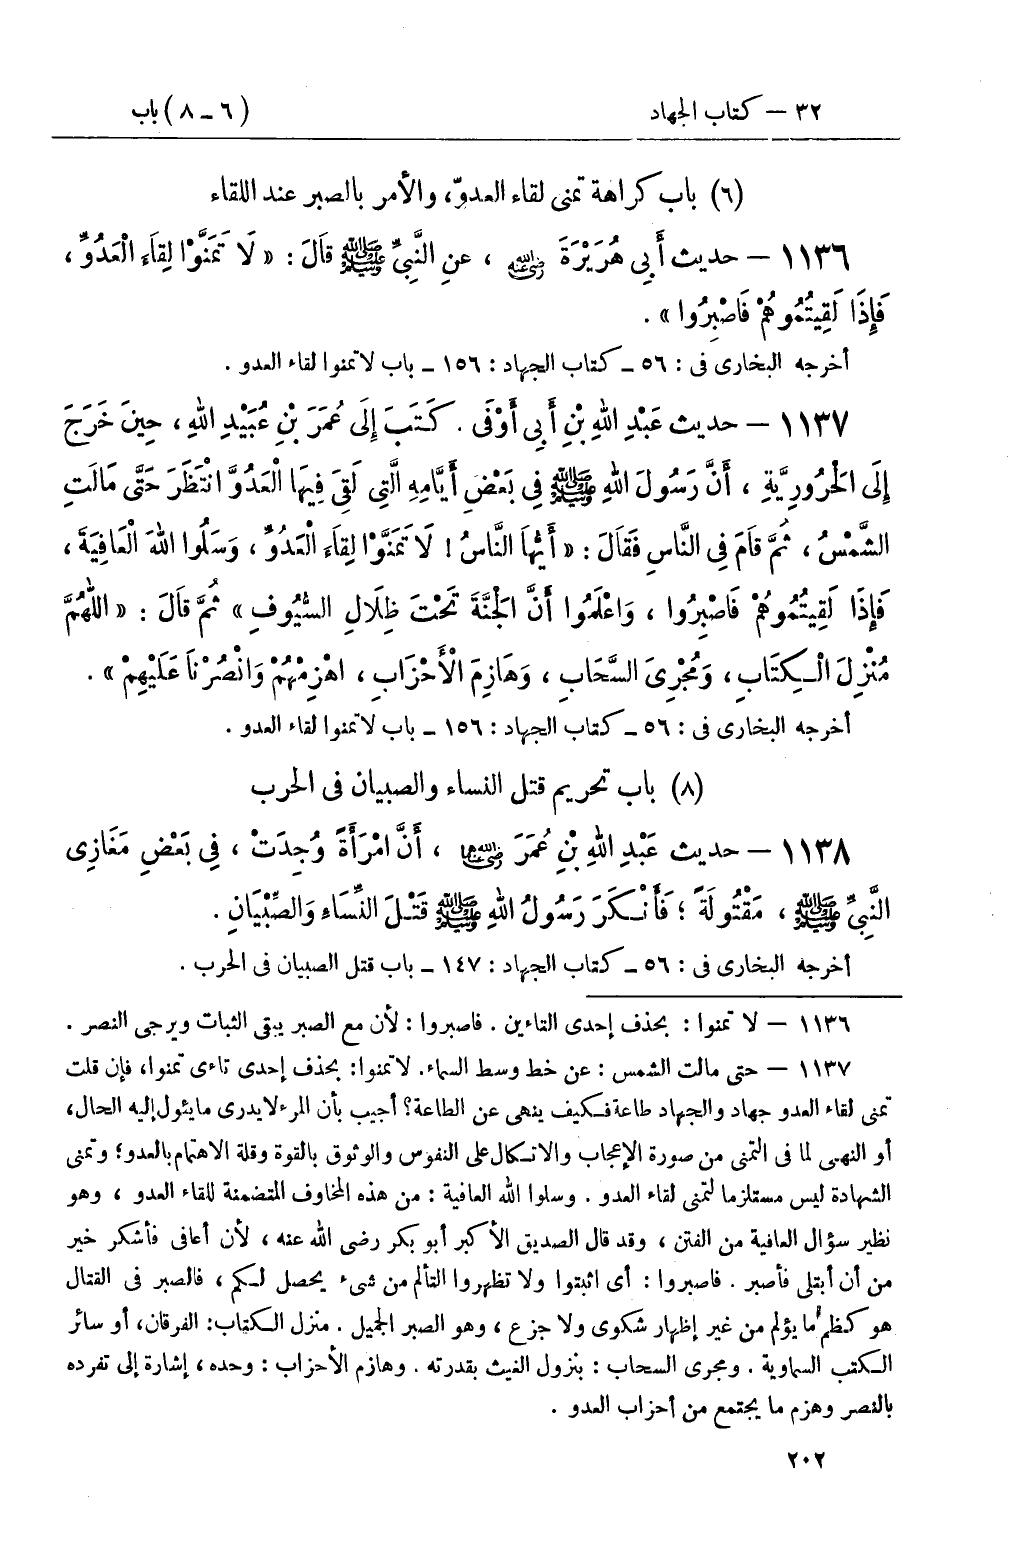 ٣٢ — كتاب الجهاد
(٦ - ٨) باب
(٦) باب كراهة تمنى لقاء العدوّ، والأمر بالصبر عند اللقاء
١١٣٦ — حديث أَبِي هُرَيْرَةَ رضي الله عنه ، عنِ النَّبِيِّ ﷺ قَالَ : « لَا تَمَنَّوْا لِقَاءِ الْعَدُوِّ ،
فَإِذَا لَقِيتُمُوهُمْ فَاصْبِرُوا » .
أخرجه البخارى فى : ٥٦ - كتاب الجهاد : ١٥٦ - باب لا تمنوا لقاء العدو .
١١٣٧ — حديث عَبْدِ اللهِ بْنِ أَبِي أَوْفَى . كَتَبَ إِلَى عُمَرَ بْنِ عُبَيْدِ اللهِ ، حِينَ خَرَجَ
إِلَى الْحَرُورِيَّةِ ، أَنَّ رَسُولَ اللهِ ﷺ فِي بَعْضِ أَيَّامِهِ الَّتِي لَقِيَ فِيهَا الْعَدُوَّ انْتَظَرَ حَتَّى مَالَتِ
الشَّمْسُ ، ثُمَّ قَامَ فِي النَّاسِ فَقَالَ : « أَيُّهَا النَّاسُ ! لَا تَمَنَّوْا لِقَاءَ الْعَدُوِّ ، وَسَلُوا اللهَ الْعَافِيَةَ ،
فَإِذَا لَقِيتُمُوهُمْ فَاصْبِرُوا ، وَاعْلَمُوا أَنَّ الْجَنَّةَ تَحْتَ ظِلَالِ السُّيُوفِ » ثُمَّ قَالَ : « اللّٰهُمَّ
مُنْزِلَ الْكِتَابِ ، وَمُجْرِىَ السَّحَابِ ، وَهَازِمَ الْأَحْزَابِ ، اهْزِمْهُمْ وَانْصُرْنَا عَلَيْهِمْ » .
أخرجه البخارى فى : ٥٦ - كتاب الجهاد : ١٥٦ - باب لا تمنوا لقاء العدو .
(٨) باب تحريم قتل النساء والصبيان فى الحرب
١١٣٨ — حديث عَبْدِ اللهِ بْنِ عُمَرَ رضي الله عنهما ، أَنَّ امْرَأَةً وُجِدَتْ ، فِي بَعْضِ مَغَازِى
النَّبِيِّ ﷺ ، مَقْتُولَةً ؛ فَأَنْكَرَ رَسُولُ اللهِ ﷺ قَتْلَ النِّسَاءِ وَالصِّبْيَانِ .
أخرجه البخارى فى : ٥٦ - كتاب الجهاد : ١٤٧ - باب قتل الصبيان فى الحرب .
١١٣٦ — لا تمنوا : بحذف إحدى التاءين . فاصبروا : لأن مع الصبر يبقى الثبات ويرجى النصر .
١١٣٧ — حتى مالت الشمس : عن خط وسط السماء. لا تمنوا: بحذف إحدى تاءى تمنوا، فإن قلت
تمنى لقاء العدو جهاد والجهاد طاعة فكيف ينهى عن الطاعة؟ أجيب بأن المرء لايدرى مايئول إليه الحال،
أو النهى لما فى التمنى من صورة الإعجاب والاتكال على النفوس والوثوق بالقوة وقلة الاهتمام بالعدو؛ وتمنى
الشهادة ليس مستلزما لتمنى لقاء العدو . وسلوا الله العافية : من هذه المخاوف المتضمنة للقاء العدو ، وهو
نظير سؤال العافية من الفتن ، وقد قال الصديق الأكبر أبو بكر رضى الله عنه ، لأن أعافى فأشكر خير
من أن أبتلى فأصبر . فاصبروا : أى اثبتوا ولا تظهروا التألم من شىء يحصل لكم ، فالصبر فى القتال
هو كظم ما يؤلم من غير إظهار شكوى ولا جزع ، وهو الصبر الجميل . منزل الكتاب: الفرقان، أو سائر
الكتب السماوية . ومجرى السحاب : بنزول الغيث بقدرته . وهازم الأحزاب : وحده ، إشارة إلى تفرده
بالنصر وهزم ما يجتمع من أحزاب العدو .
٢٠٢